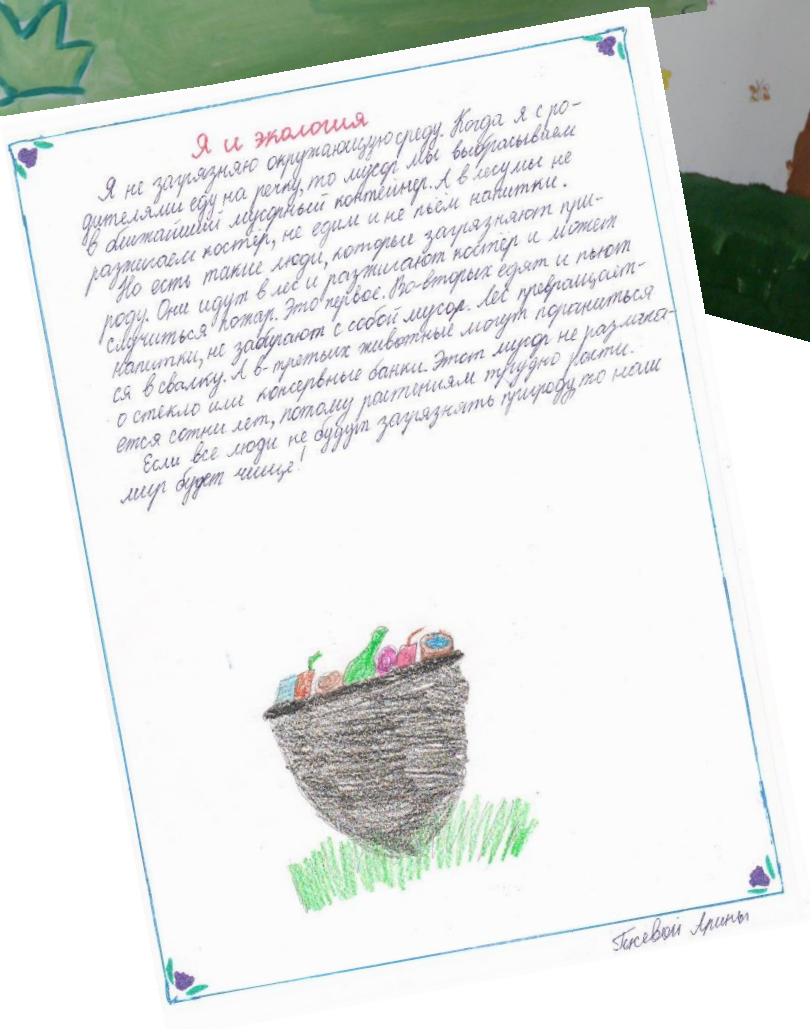 Я и экология
Я не загрязняю окружающую среду. Когда я с ро-
дителями еду на речку, то мусор мы выбрасываем
в ближайший мусорный контейнер. А в лесу мы не
разжигаем костёр, не едим и не пьём напитки.
Но есть такие люди, которые загрязняют при-
роду. Они идут в лес и разжигают костёр и может
случиться пожар. Это первое. Во-вторых едят и пьют
напитки, не забирают с собой мусор. Лес превращает-
ся в свалку. А в-третьих животные могут пораниться
о стекло или консервные банки. Этот мусор не разлага-
ется сотни лет, потому растениям трудно расти.
Если все люди не будут загрязнять природу, то наш
мир будет чище!
Арины